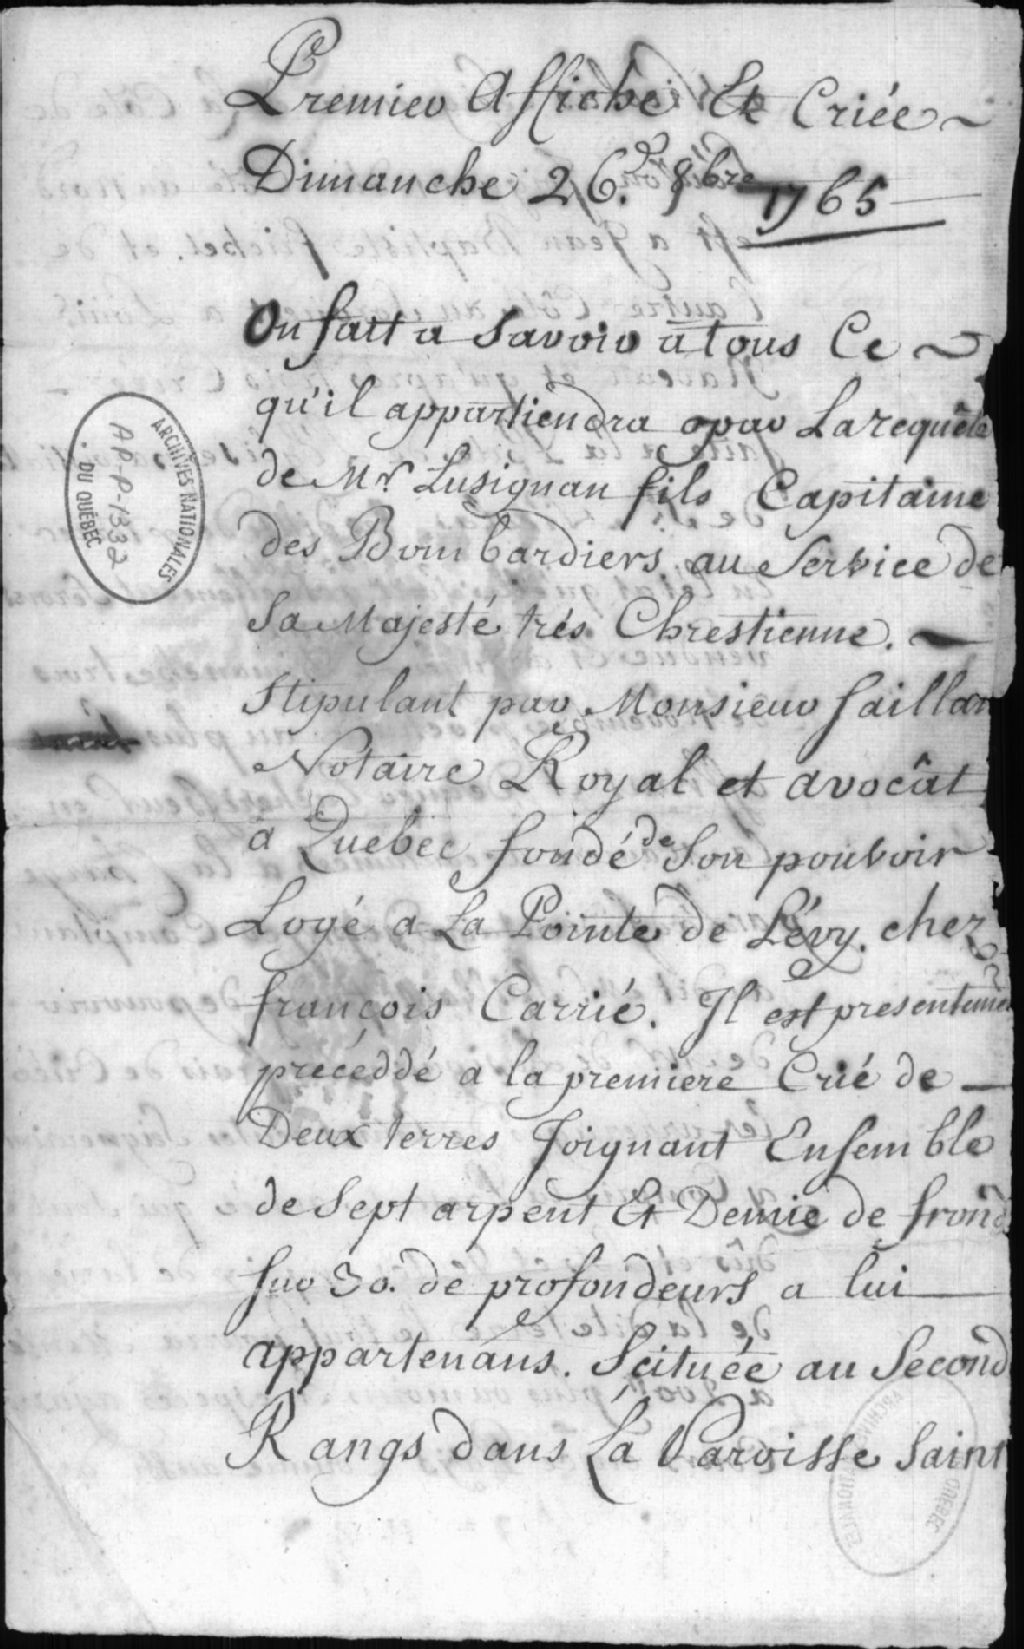 Premier Affiche Et Criée
Dimanche 26. 8bre 1765
On fait a Savoir a tous Ce
qu'il appartiendra par La requête
de Mr Lusignan fils Capitaine
des Bombardiers au Service de
Sa Majesté trés Chrestienne.
Stipulant par Monsieur Saillan
Notaire Royal et avocât
à Quebec fondé de Son pouvoir
Logé a La Pointe de Lévy. chez
françois Carrié. Il est presentement
precéddé a la premiere Crié de
Deux terres Joignant Ensemble
de Sept arpent Et Demie de front
Sur 30. de profondeurs a lui
appartenans. Scituée au Second
Rangs dans La Paroisse Saint
ARCHIVES NATIONALES
DU QUÉBEC
AP-P-1332